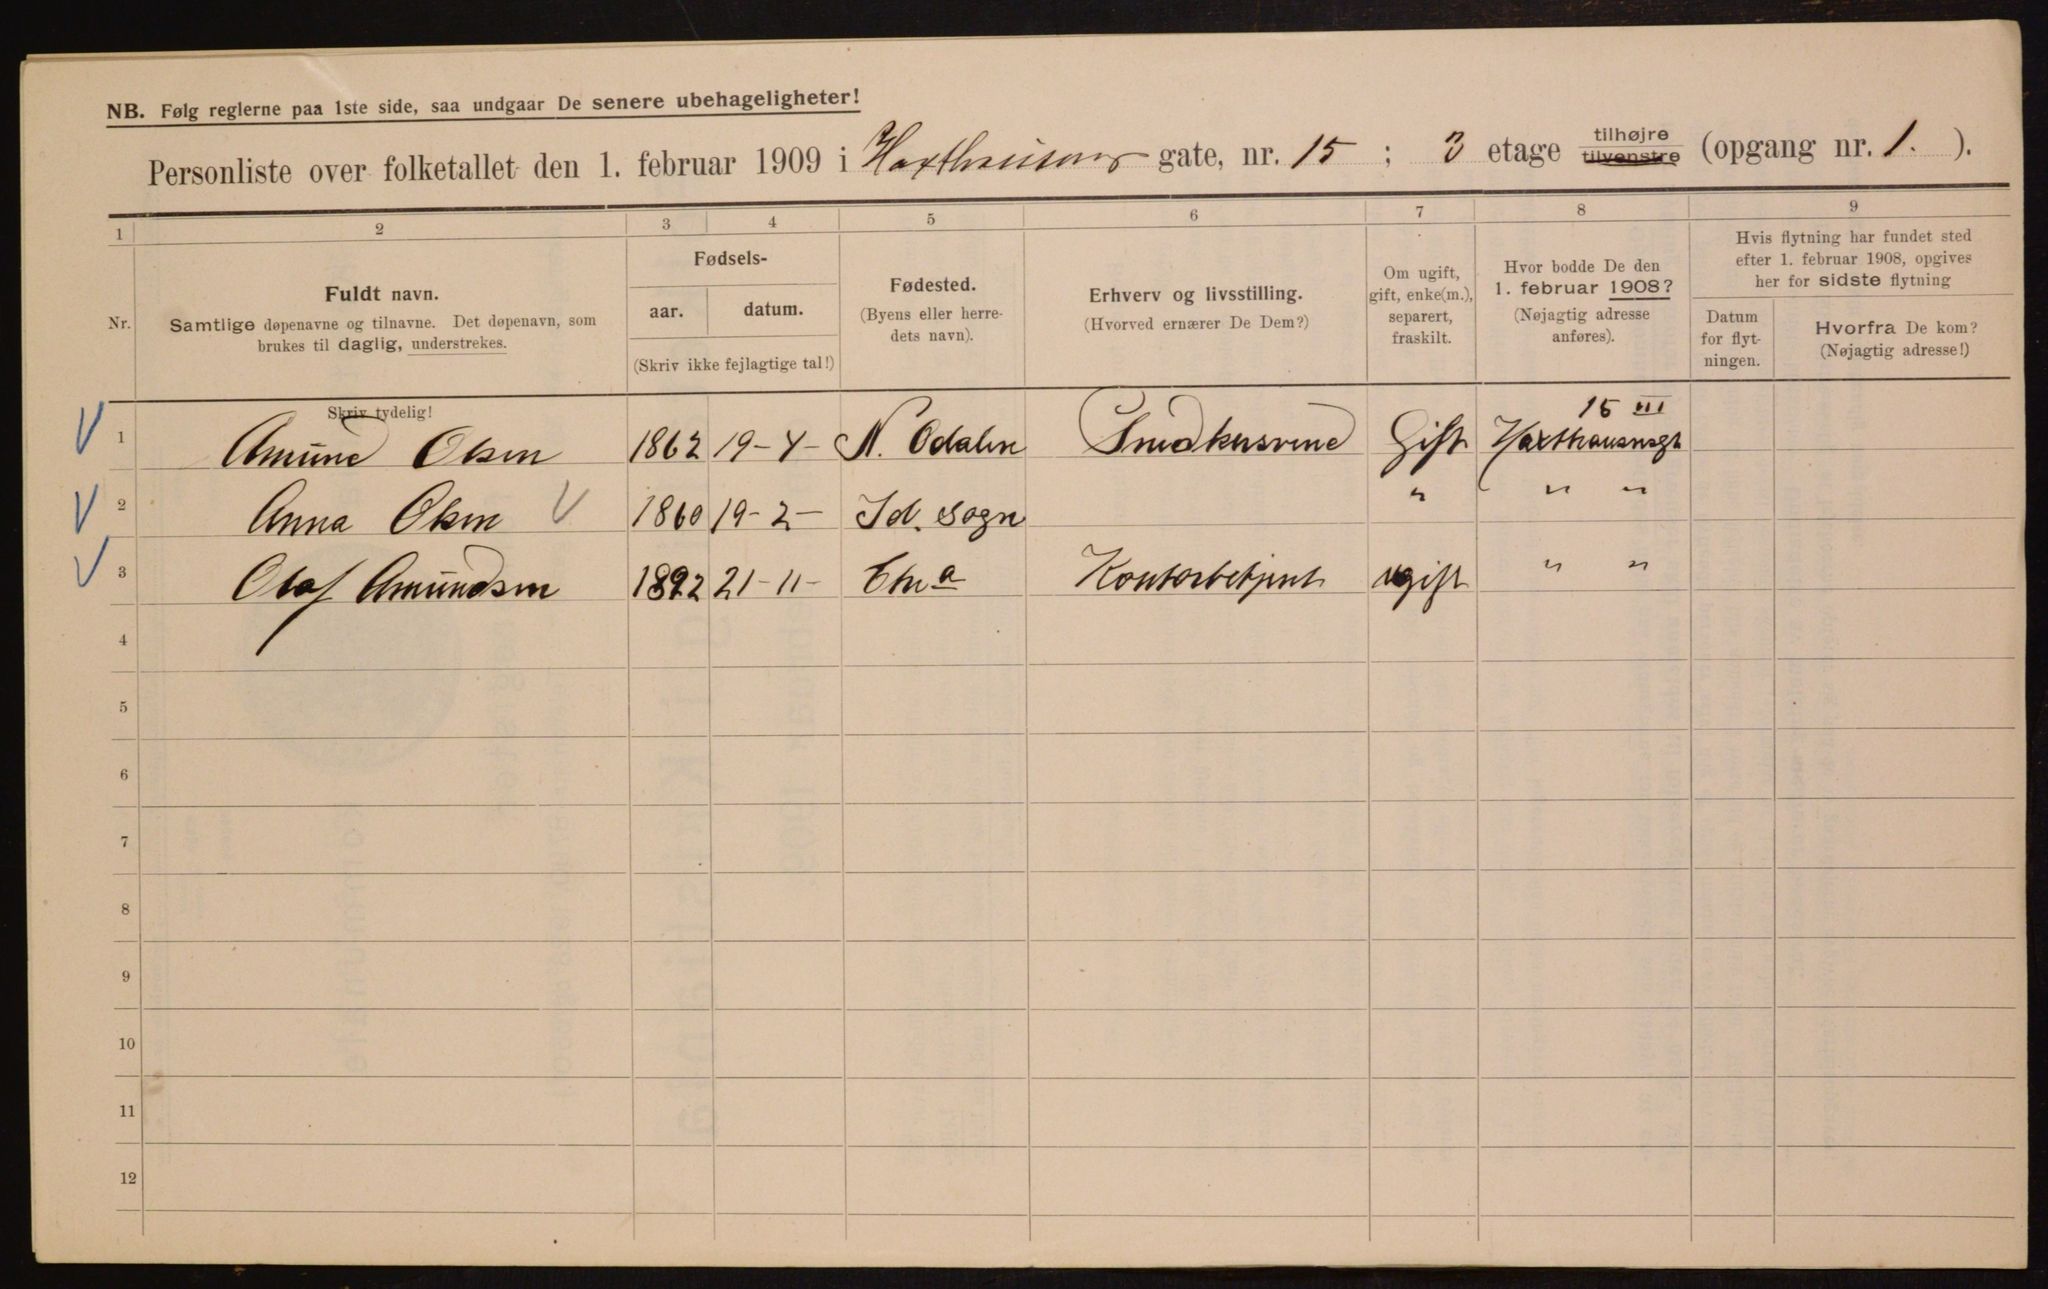 NB. Følg reglerne paa 1ste side, saa undgaar De senere ubehageligheter!
Personliste over folketallet den 1. februar 1909 i Haxthausens gate, nr. 15 ; 3 etage tilhøjre tilvenstre (opgang nr. 1. ).
1 2 3 4 5 6 7 8 9
Nr.
Fuldt navn.
Samtlige døpenavne og tilnavne. Det døpenavn, som
brukes til daglig, understrekes.
Fødsels-
aar. datum.
(Skriv ikke fejlagtige tal!)
Fødested.
(Byens eller herre-
dets navn).
Erhverv og livsstilling.
(Hvorved ernærer De Dem?)
Om ugift,
gift, enke(m.),
separert,
fraskilt.
Hvor bodde De den
1. februar 1908?
(Nøjagtig adresse
anføres).
Hvis flytning har fundet sted
efter 1. februar 1908, opgives
her for sidste flytning
Datum
for flyt-
ningen.
Hvorfra De kom?
(Nøjagtig adresse!)
Skriv tydelig!
15 III
1 Amund Olsen 1862 19-4- N. Odalen Smedkusvend Gift Haxthausensgt
2 Anna Olsen 1860 19-2- Id. Sogn " " "
3 Olaf Amundsen 1892 21-11- Chr.a Kontorbetjent ugift " "
4
5
6
7
8
9
10
11
12